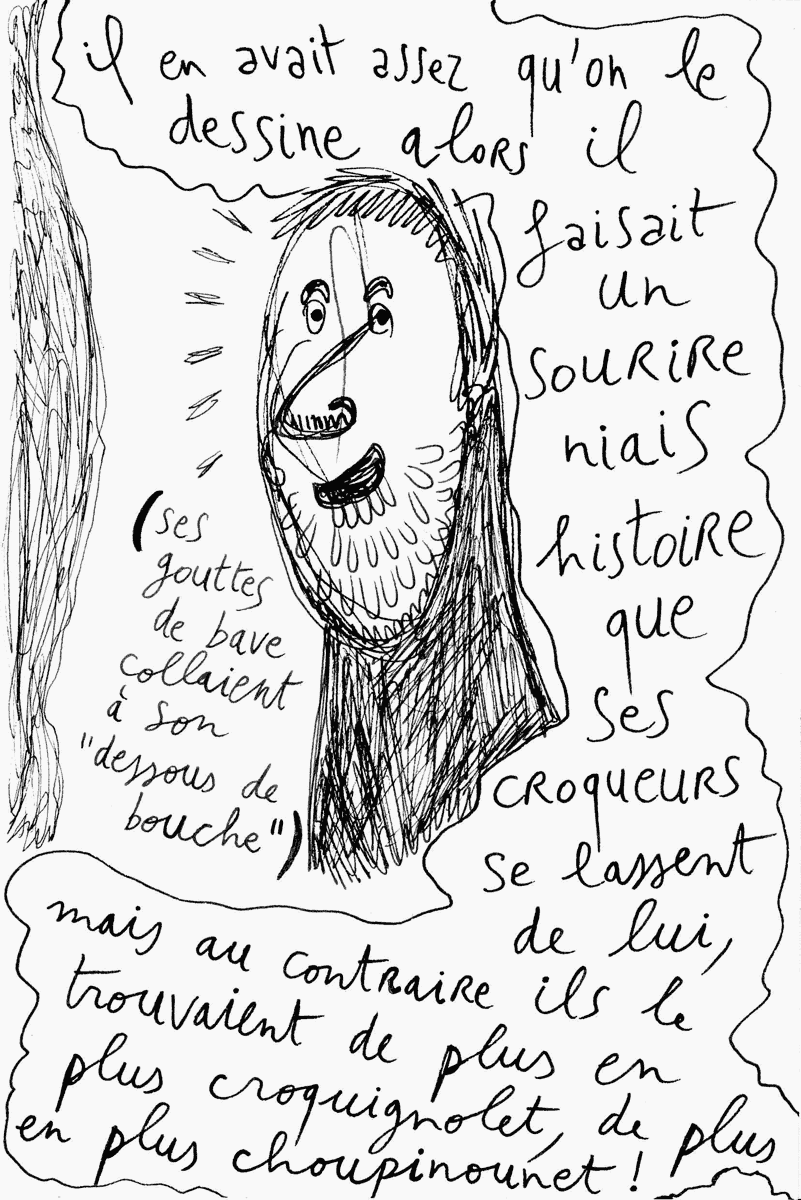 il en avait assez qu'on le
dessine alors il
faisait
un
sourire
niais
histoire
que
ses
croqueurs
se lassent
de lui,
(ses
gouttes
de bave
collaient
à son
"dessous de
bouche")
mais au contraire ils le
trouvaient de plus en
plus croquignolet, de plus
en plus choupinounet !